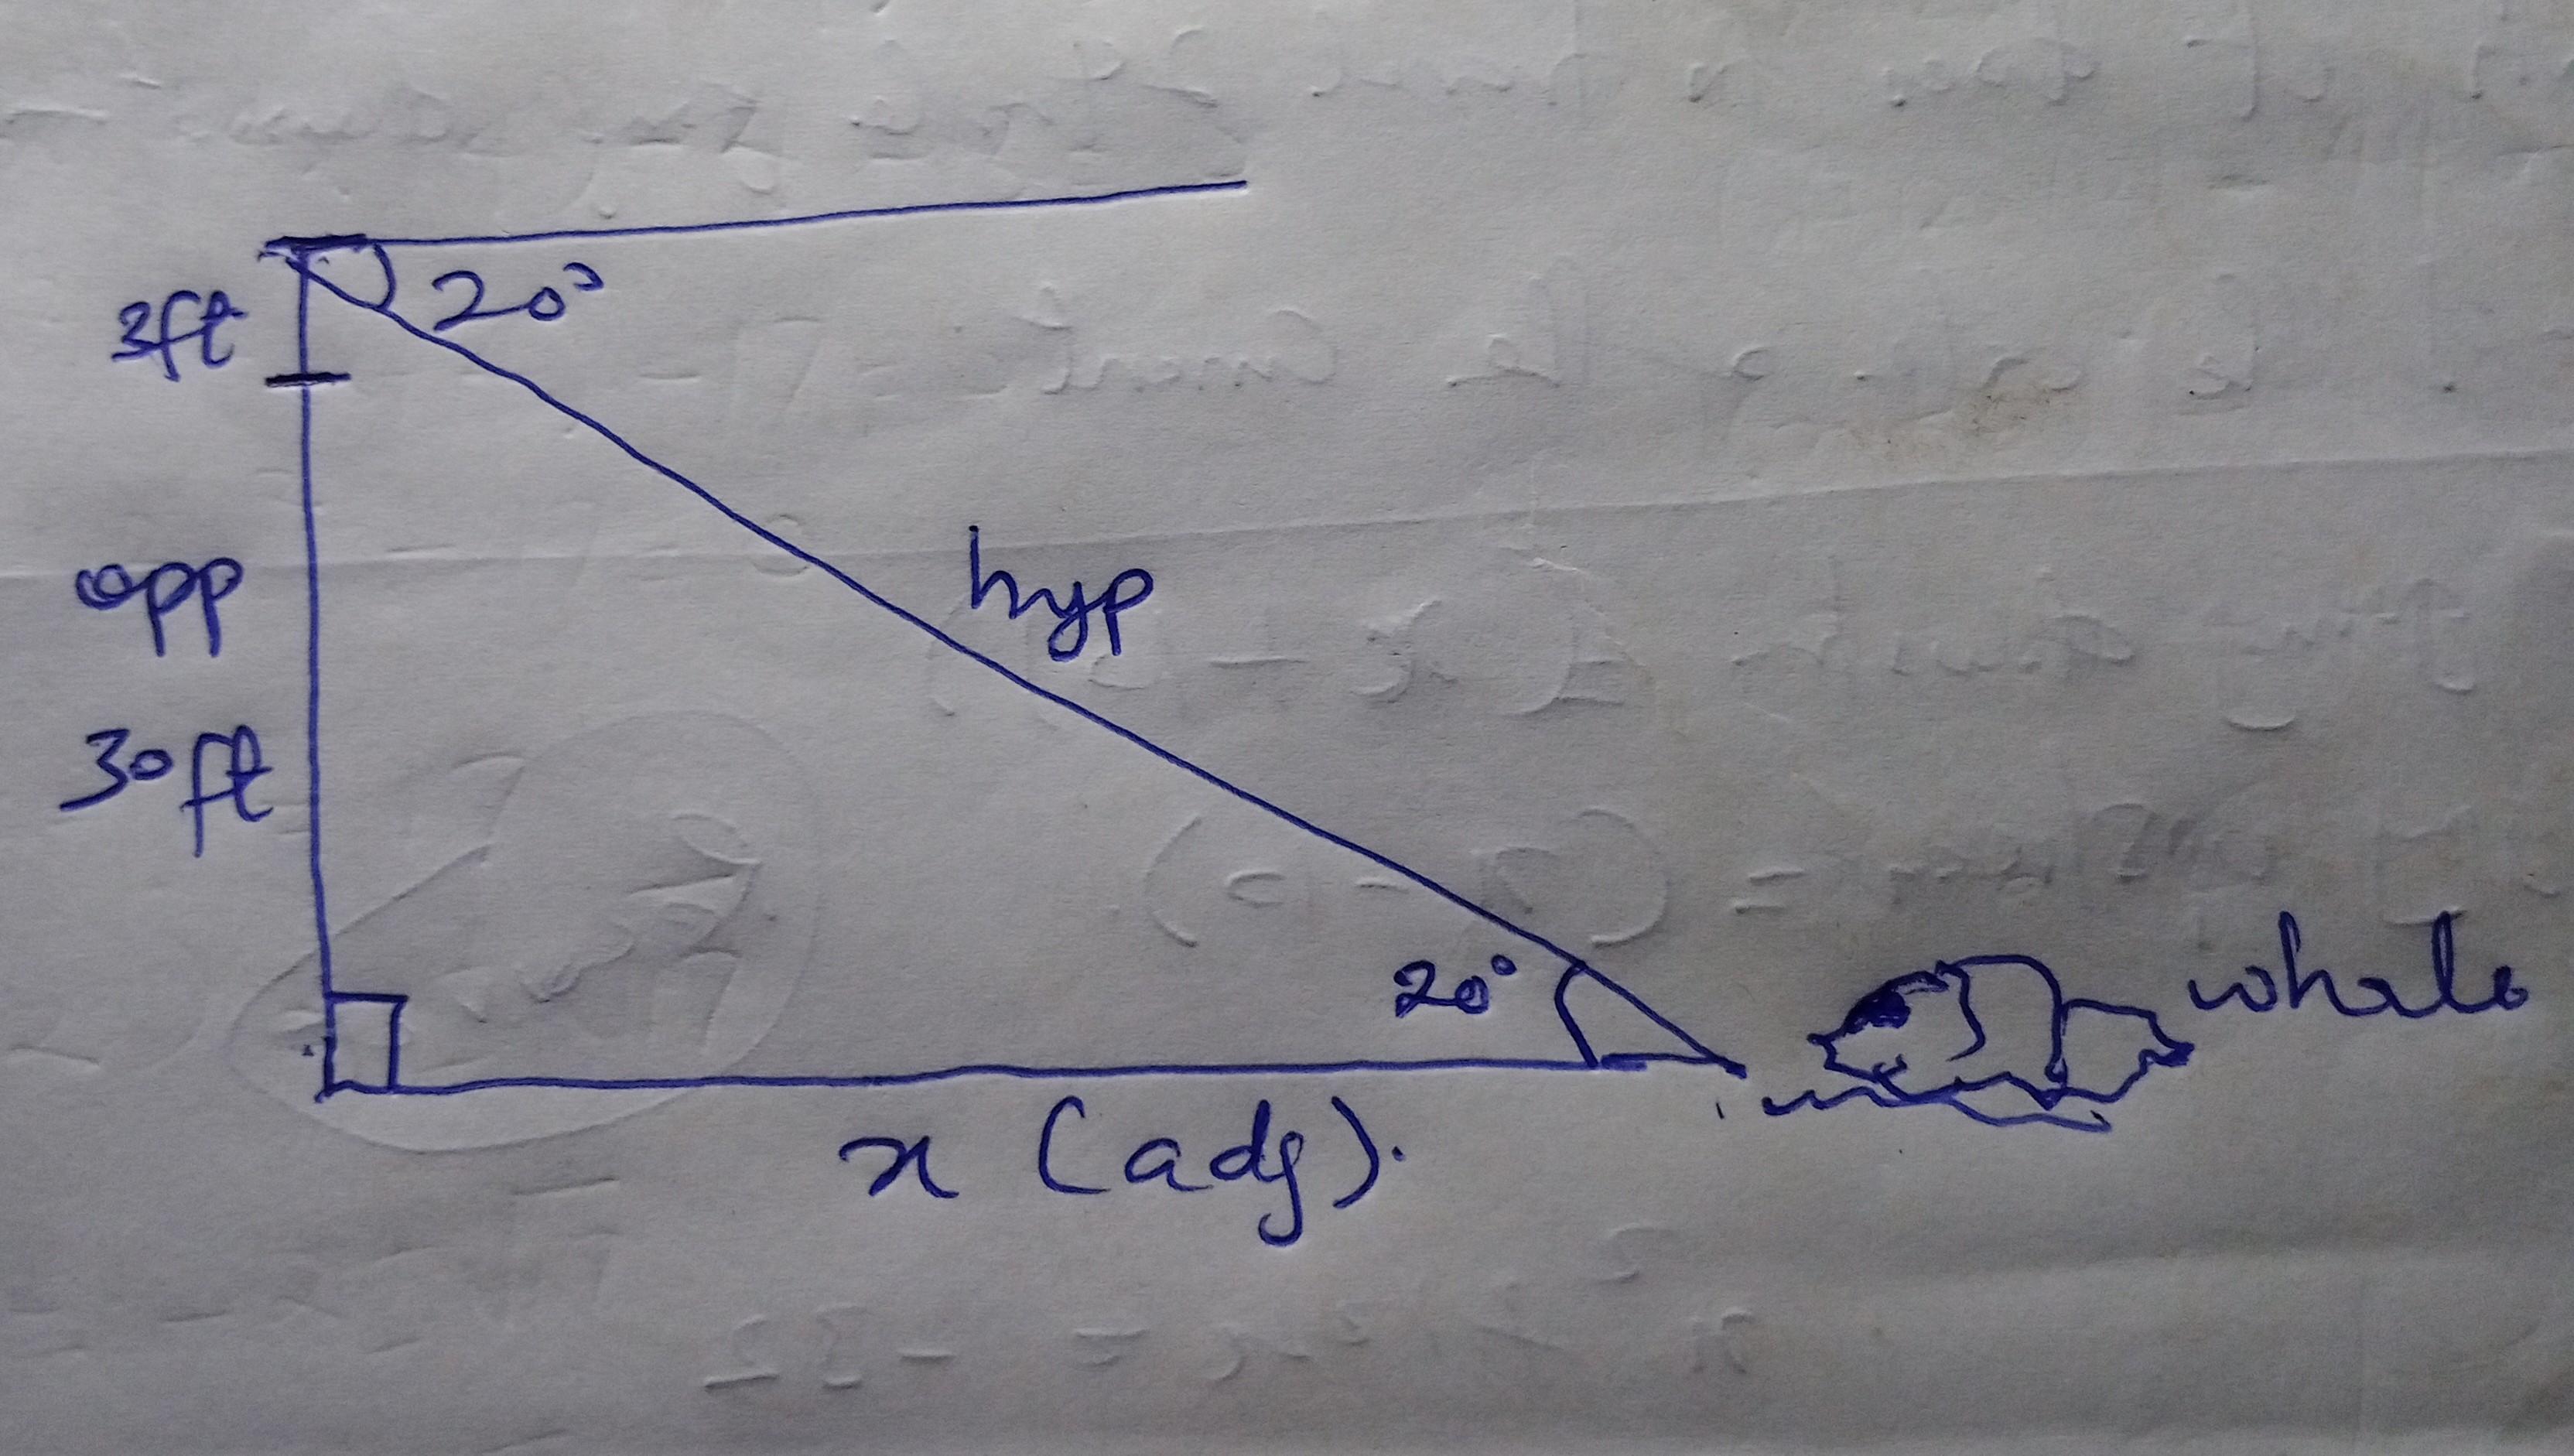 20°
3ft
hyp
opp
30ft
20°
whale
x (adj).